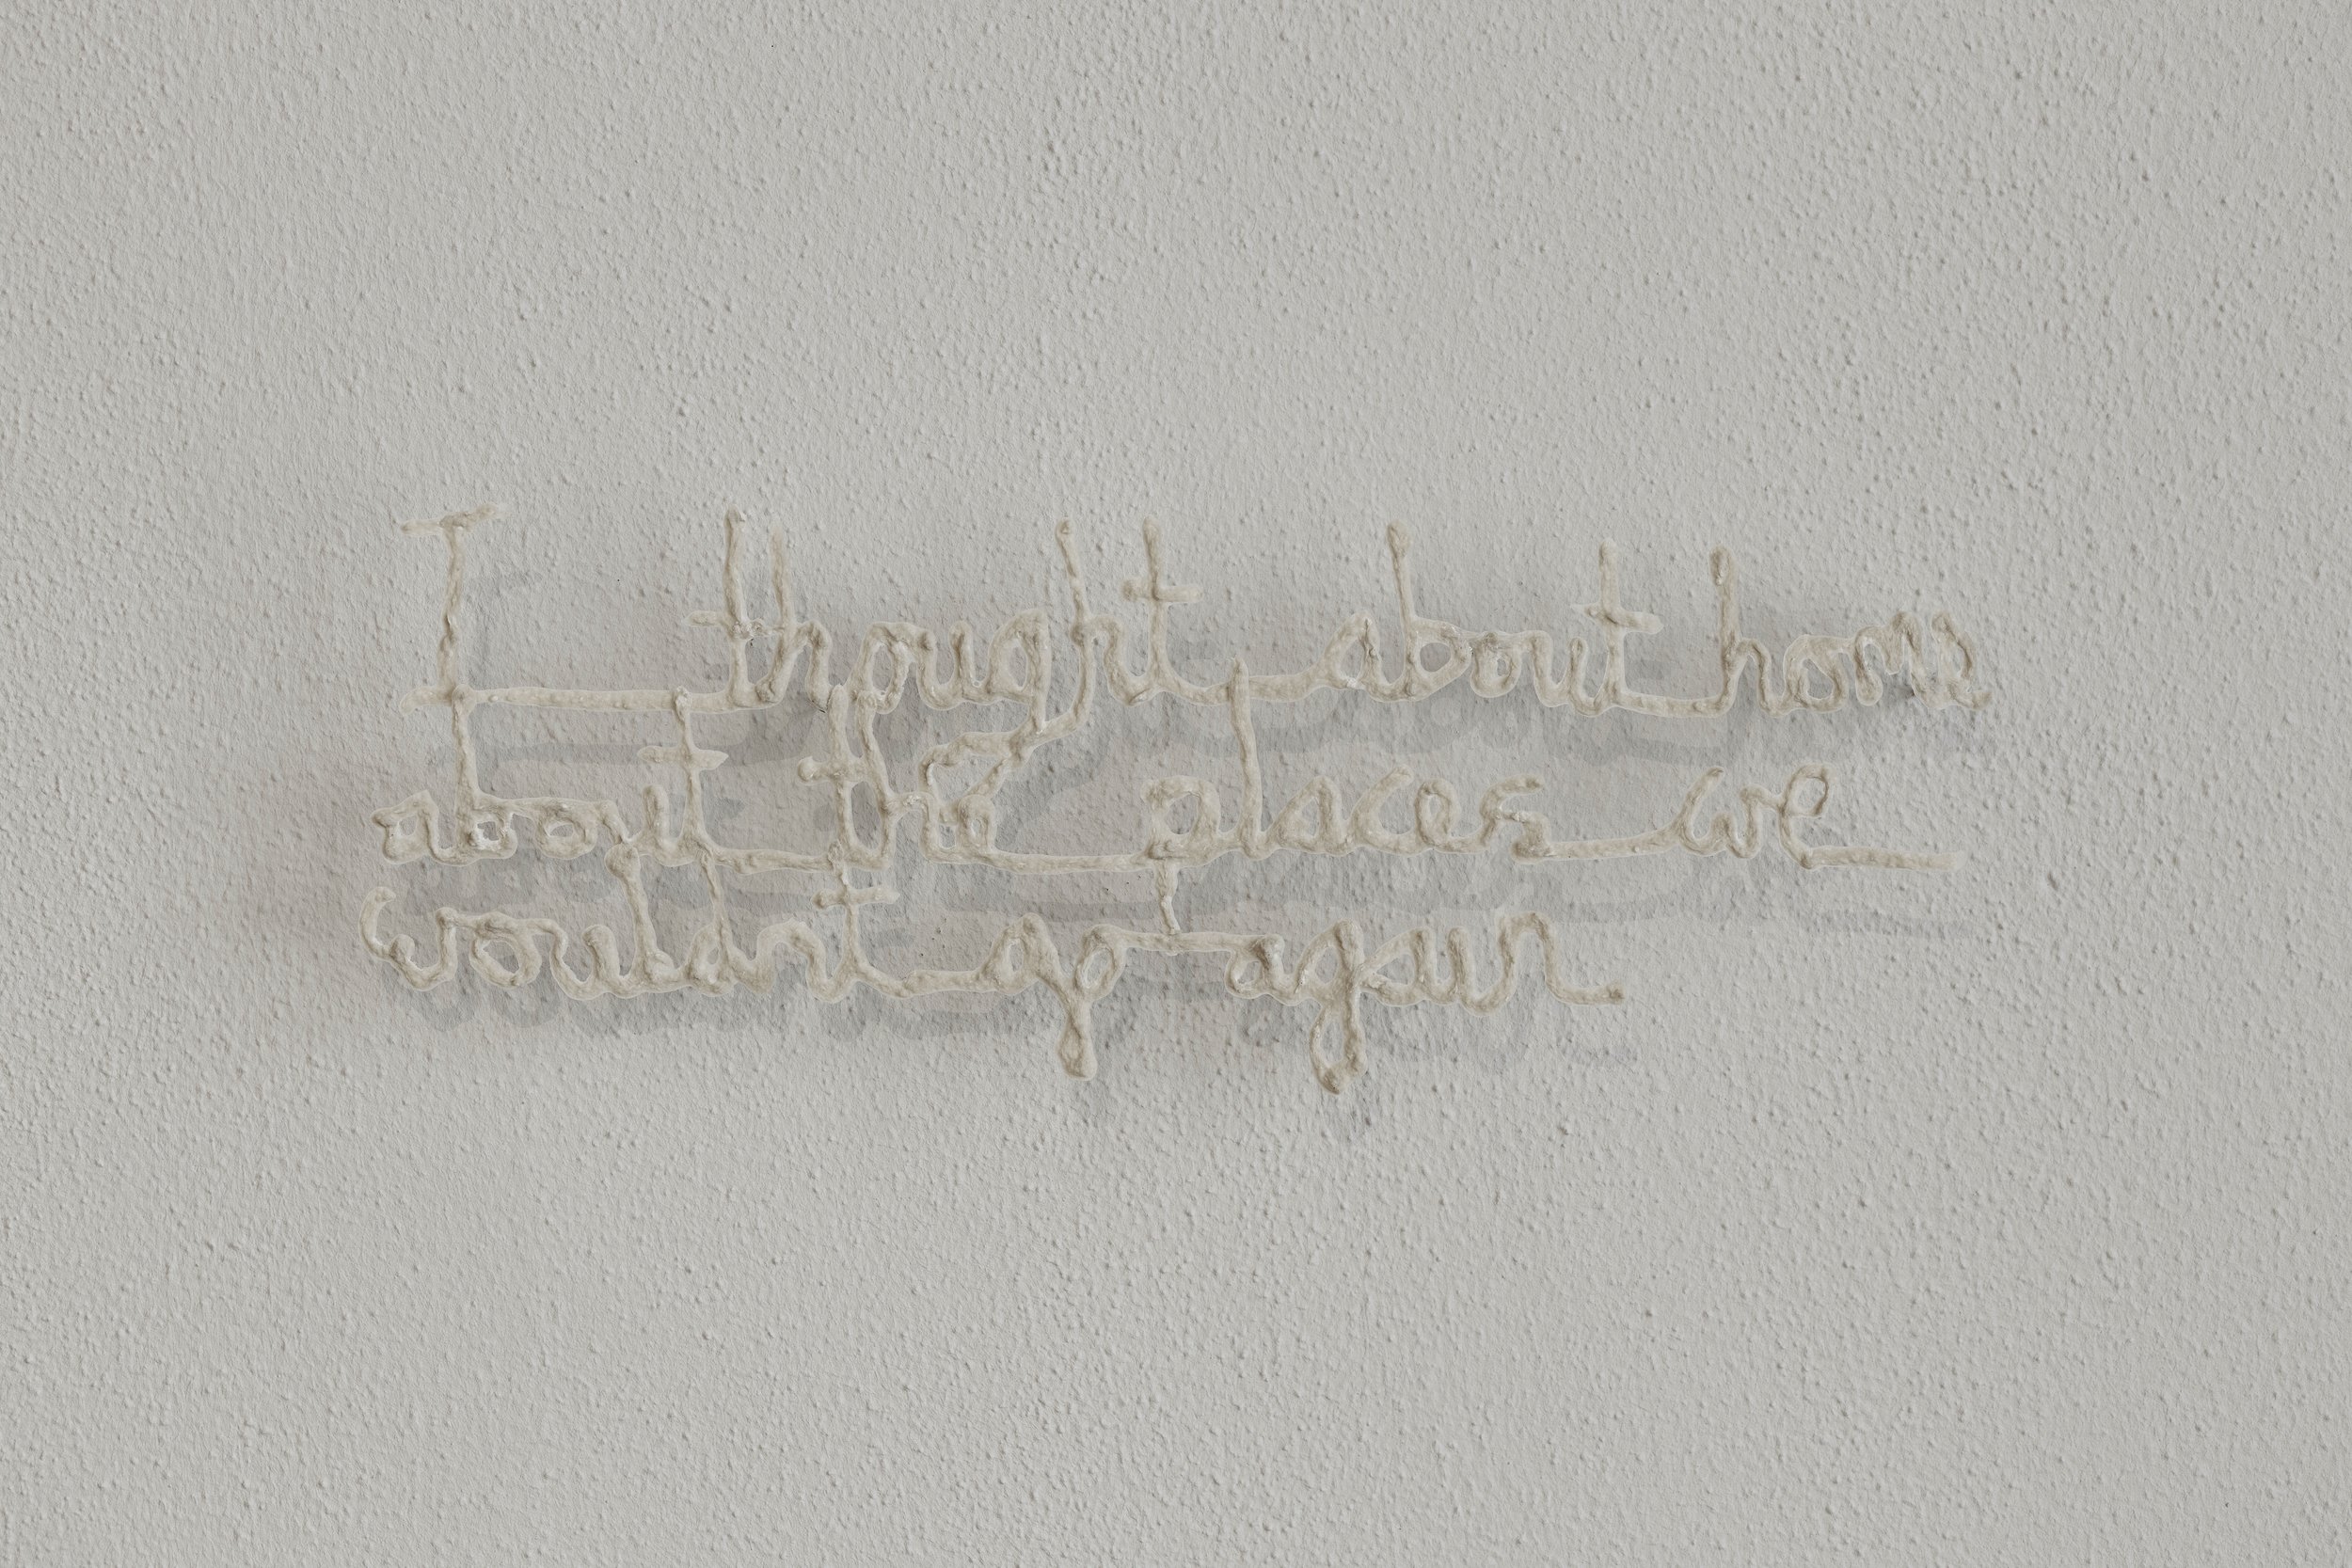 I thought about home
about the places we
wouldn't go again